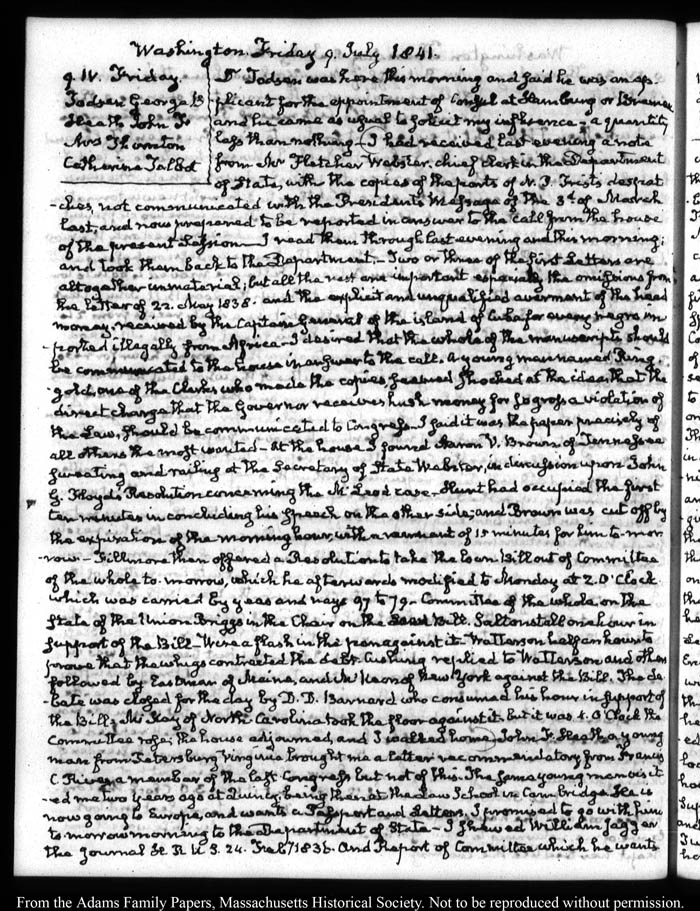 Washington Friday 9. July 1841.
9. IV. Friday.
Todsen George P
Heath John F
Mrs Thornton
Catherine Talbot
Dr Todsen was here this morning and said he was an ap-
plicant for the appointment of Consul at Hamburg or Bremen
and he came as usual to solicit my influence; a quantity
less than nothing— I had received last evening a note
from Mr Fletcher Webster, chief clerk in the Department
of State, with the copies of the parts of N. P. Trist's despat
-ches, not communicated with the President's Message of the 3d. of March
last, and now prepared to be reported in answer to the call from the house
of the present Session— I read them through last evening and this morning;
and took them back to the Department— Two or three of the first Letters are
altogether immaterial; but all the rest are important especially the omissions from
the letter of 22. May 1838. and the explicit and unqualified averment of the head
money, received by the Captain General of the island of Cuba for every negro im
-ported illegally from Africa— I desired that the whole of the manuscripts should
be communicated to the house in answer to the call. A young man named Ring
-gold, one of the Clerks who made the copies, seemed shocked at the idea, that the
direct charge that the Governor receives hush money for so gross a violation of
the Law, should be communicated to Congress— I said it was the paper precisely of
all others the most wanted— At the house I found Aaron V. Brown of Tennessee
sweating and railing at the Secretary of State Webster, in discussion upon John
G. Floyd's Resolution concerning the McLeod case— Hunt had occupied the first
ten minutes in concluding his speech on the other side; and Brown was cut off by
the expiration of the morning hour, with a remnant of 15 minutes for him to-mor
-row— Fillmore then offered a Resolution to take the Loan Bill out of Committee
of the whole to-morrow, which he afterwards modified to Monday at 2. O'Clock
which was carried by yeas and nays 97 to 79— Committee of the whole on the
State of the Union Briggs in the Chair on the Bill. Saltonstall one hour in
support of the Bill— Wise a flash in the pan against it— Watterson half an hour to
prove that the whigs contracted the debt. Cushing replied to Watterson and others
followed by Eastman of Maine, and McKeon of New York against the Bill. The de
-bate was closed for the day by D. D. Barnard who consumed his hour in support of
the Bill; McKay of North Carolina took the floor against it. but it was 4. O'Clock the
Committee rose; the house adjourned, and I walked home. John F. Heath a young
man from Petersburg Virginia brought me a letter recommendatory from Francis
C Rives a member of the last Congress but not of this. The same young man visit
-ed me two years ago at Quincy, being then at the Law School in Cambridge. He is
now going to Europe, and wants a Passport and Letters. I promised to go with him
to morrow morning to the Department of State— I shewed William Jagger
the Journal H. R. U. S. 24. Feb. 1836. And Report of Committee which he wants
From the Adams Family Papers, Massachusetts Historical Society. Not to be reproduced without permission.